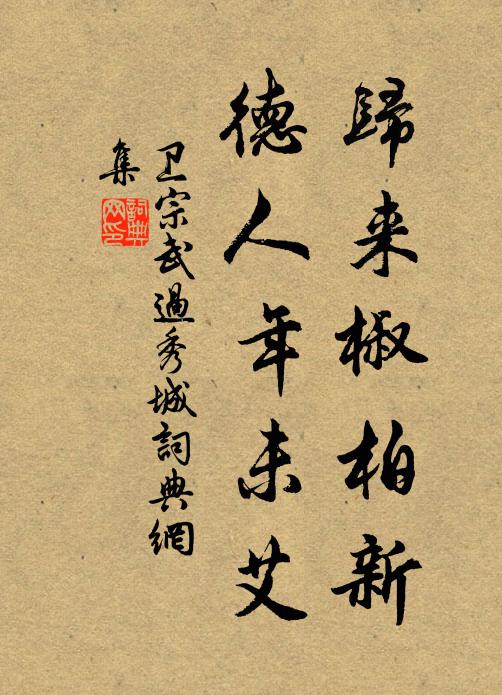 歸来椒柏新
德人年未艾
卫宗武過秀城詞典網
集
詞典網印